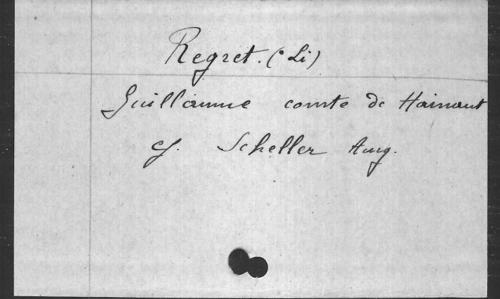 Regret. (Li)
Guillaume comte de Hainaut
cf. Scheller Aug.